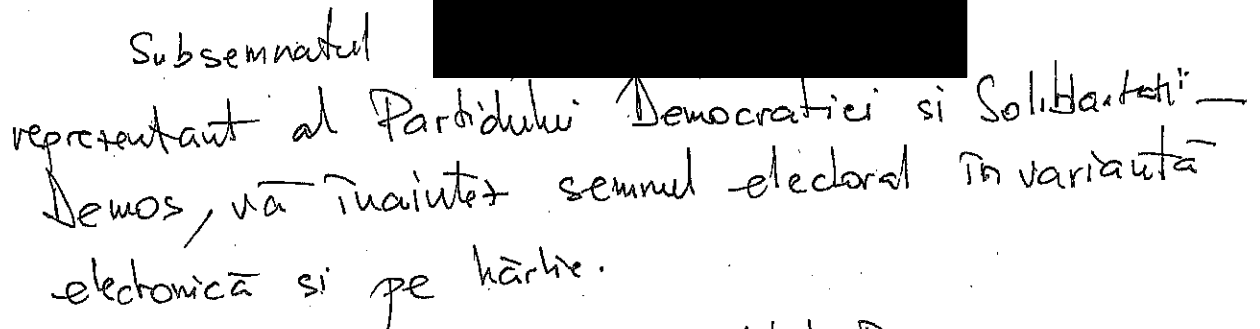 Subsemnatul
reprezentant al Partidului Democratiei si Solidaritatii -
Demos, vă înaintez semnul electoral în variantă
electonică si pe hârtie.